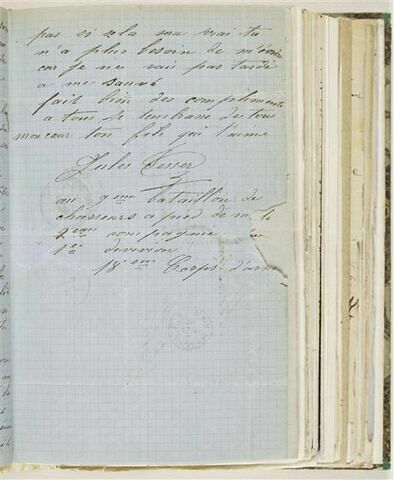 pas si cela sera vrai tu
n'a plus besoin de m'écrire
car je ne vais pas tardé
a me sauvé
fait bien des compliments
a tous je tembrasse de tous
mon cœur ton fils qui t'aime
Jules
au 9eme bataillon de
chasseurs a pied de
2eme compagnie
1ere division
18 eme Corps d'arm